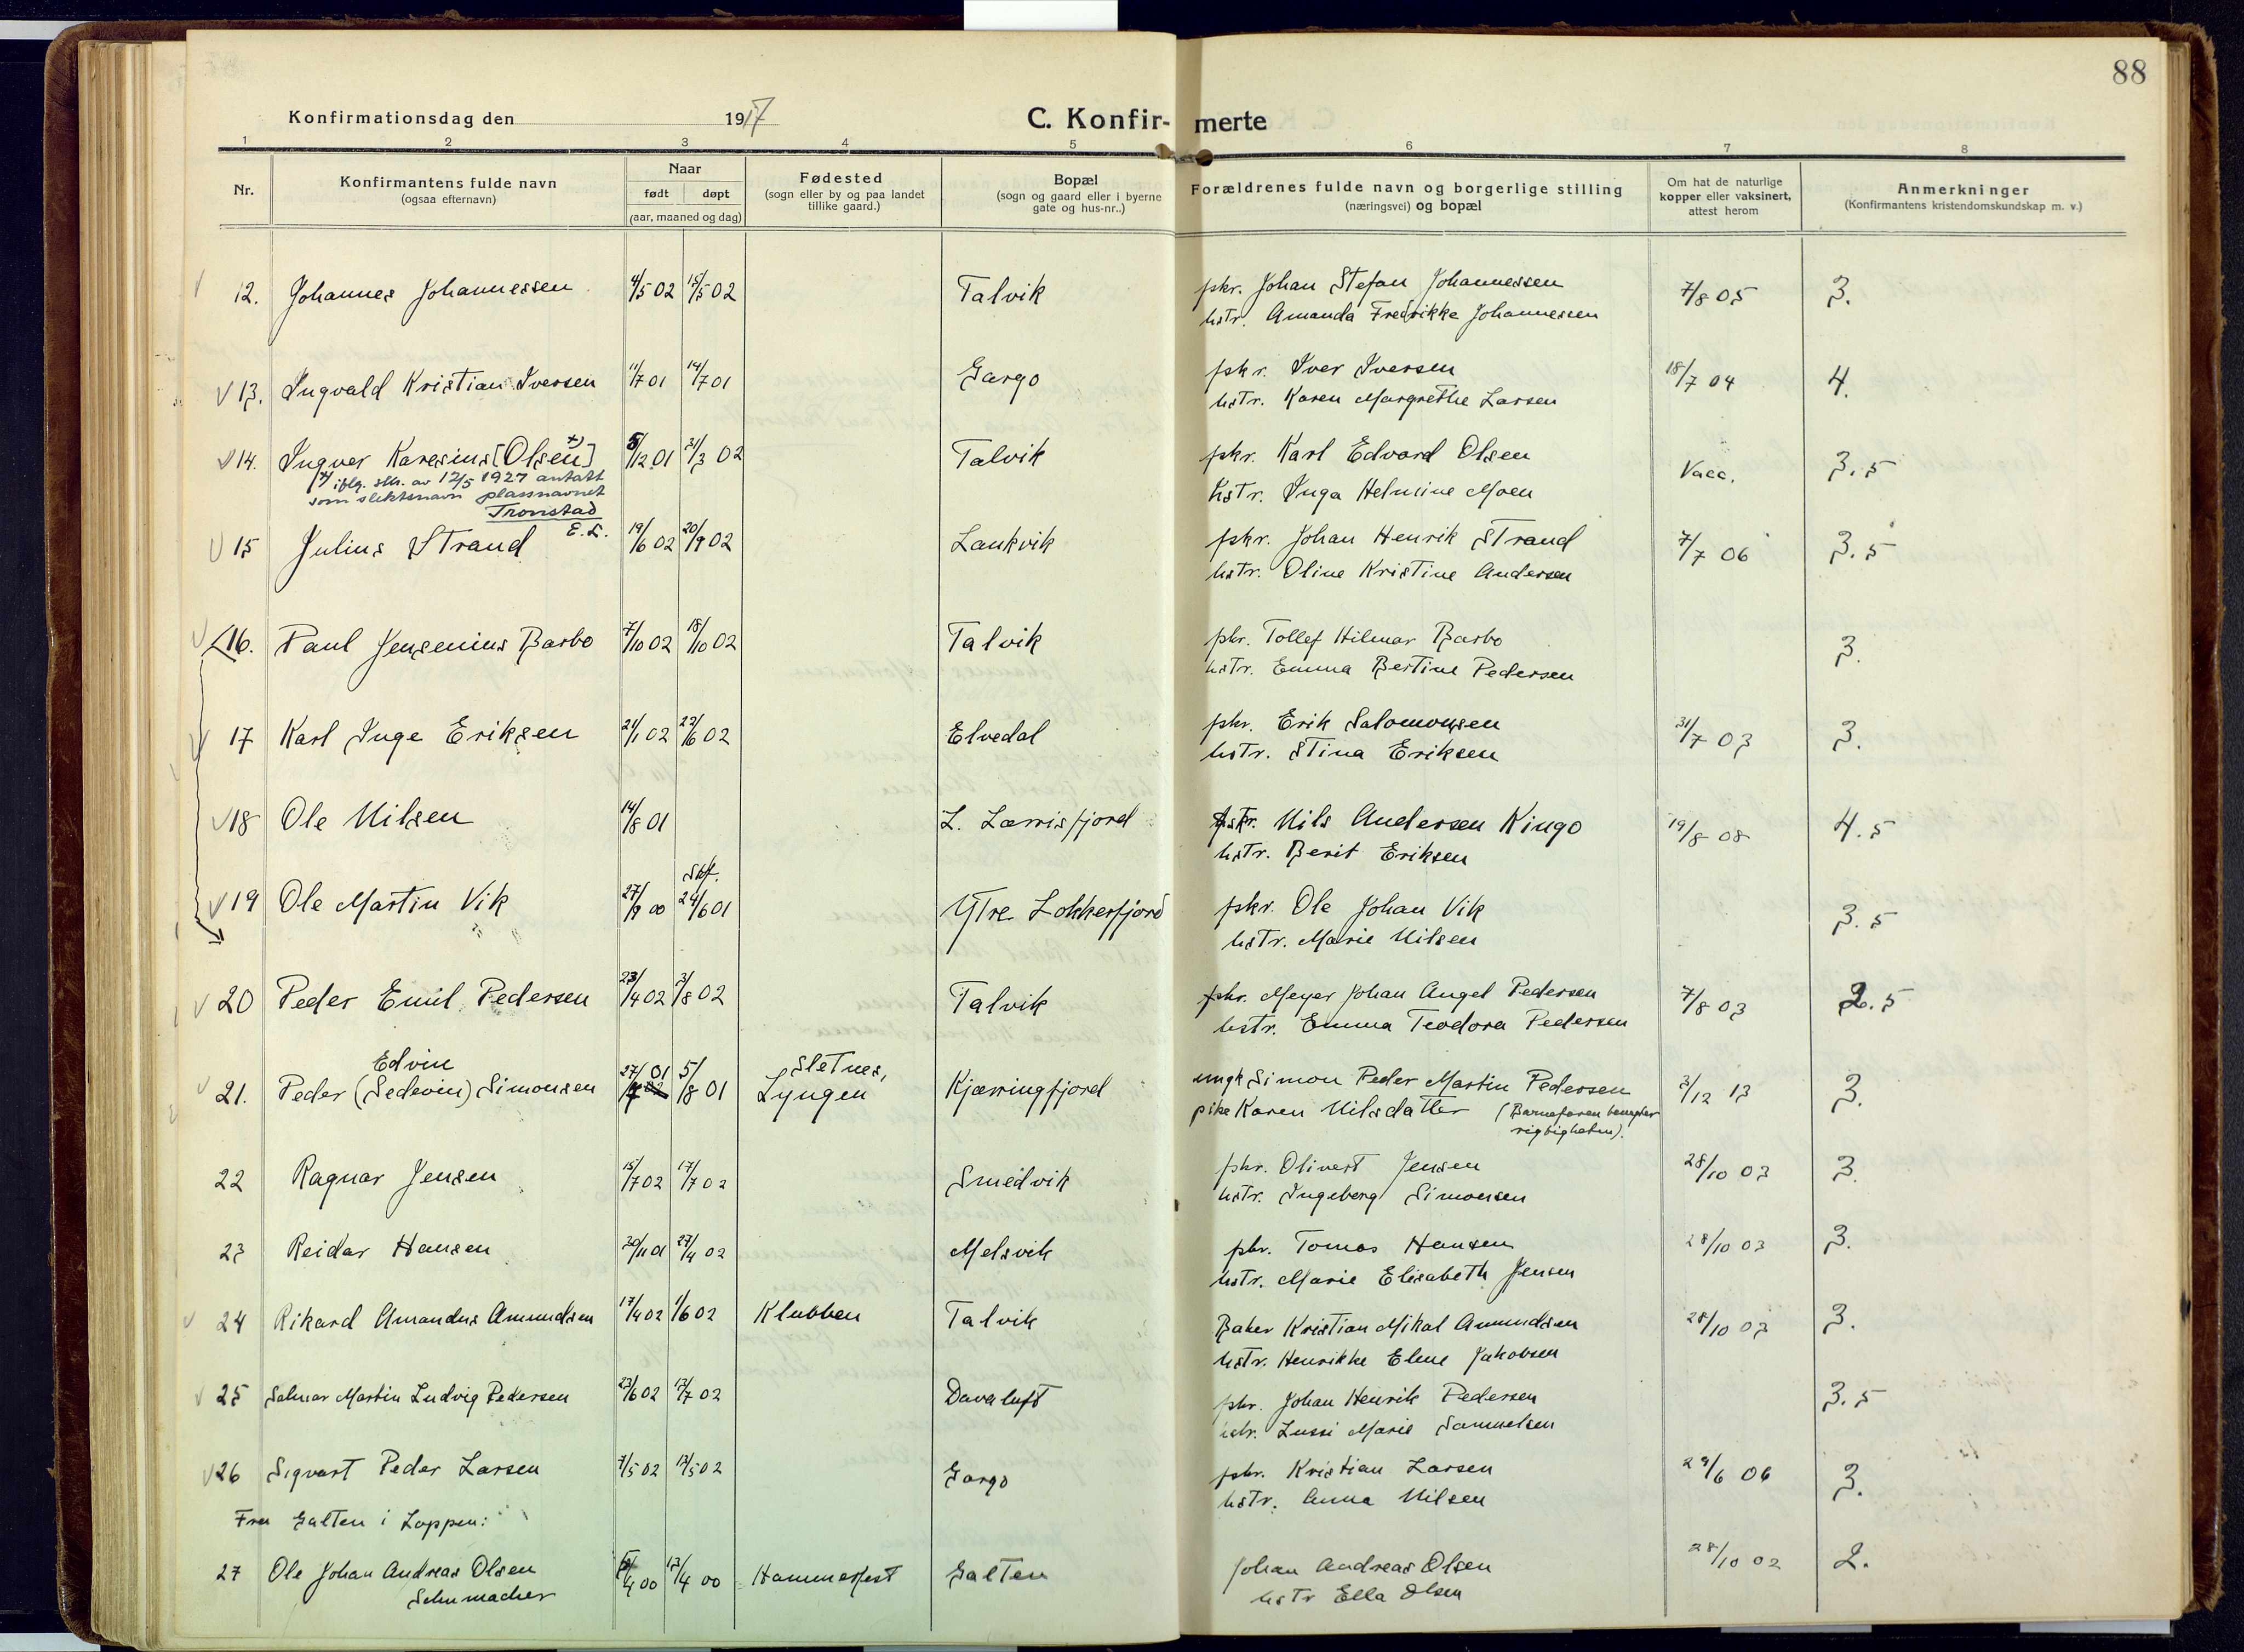 88
Konfirmationsdag den 1917 C. Konfir- merte
1 2 3 4 5 6 7 8
Nr.
Konfirmantens fulde navn
(ogsaa efternavn)
Naar
født døpt
(aar, maaned og dag)
Fødested
(sogn eller by og paa landet
tillike gaard.)
Bopæl
(sogn og gaard eller i byerne
gate og hus-nr..)
Forældrenes fulde navn og borgerlige stilling
(næringsvei) og bopæl
Om hat de naturlige
kopper eller vaksinert,
attest herom
Anmerkninger
(Konfirmantens kristendomskundskap m. v.)
12. Johannes Johannessen 4/5 02 15/5 02 Talvik fskr. Johan Stefan Johannessen 7/8 05 3.
hstr. Amanda Fredrikke Johannessen
13. Ingvald Kristian Iversen 11/7 01 14/7 01 Gargo fskr. Iver Iversen 18/7 04 4.
hstr. Karen Margrethe Larsen
14. Ingver Karesius [Olsen] +) 5/12 01 31/3 02 Talvik fskr. Karl Edvard Olsen Vacc. 3.5
+) iflg. slh. av 12/5 1927 antatt
som slektsnavn plassnavnet
Tronstad
E.S.
hstr. Inga Helmine Moen
15 Julius Strand 19/6 02 20/9 02 Lankvik fskr. Johan Henrik Strand 7/7 06 3.5
hstr. Oline Kristine Andersen
16. Paul Jensenius Barbo 7/10 02 18/10 02 Talvik fskr. Tollef Hilmar Barbo 3.
hstr. Emma Bertine Pedersen
17 Karl Inge Eriksen 21/1 02 22/6 02 Elvedal fskr. Erik Salomonsen 31/7 03 3.
hstr. Stina Eriksen
18 Ole Nilsen 14/8 01 L. Lerrisfjord fskr. Nils Andersen Kingo 19/8 08 4.5
hstr. Berit Eriksen
19 Ole Martin Vik 27/9 00 Skf. 24/6 01 Ytre Lokkerfjord fskr. Ole Johan Vik 3.5
hstr. Marie Nilsen
20 Peder Emil Pedersen 23/4 02 3/8 02 Talvik fskr. Meyer Johan Angel Pedersen 7/8 03 2.5
hstr. Emma Teodora Pedersen
21. Peder (Sedevin) Edvin Simonsen 27/7 01 5/8 01 Sletnes, Lyngen Kjærringfjord ungk Simon Peder Martin Pedersen 3/12 13 3.
pike Karen Nilsdatter (Barnefaren benegter
rigtigheten).
22 Ragnar Jensen 15/7 02 17/7 02 Smedvik fskr. Olivert Jensen 28/10 03 3.
hstr. Ingeborg Simonsen
23 Reidar Hansen 30/11 01 27/4 02 Melsvik fskr. Tomas Hansen 28/10 03 3.
hstr. Marie Elisabeth Jensen
24 Rikard Amandus Amundsen 17/4 02 1/6 02 Klubben Talvik Baker Kristian Mikal Amundsen 28/10 03 3.
hstr. Henrikke Eline Jakobsen
25 Salmar Martin Ludvig Pedersen 23/6 02 13/7 02 Davaluft fskr. Johan Henrik Pedersen 3.5
hstr. Lussi Marie Samuelsen
26 Sigvart Peder Larsen 7/5 02 13/5 02 Gargo fskr. Kristian Larsen 29/6 06 3.
hstr. Anna Nilsen
Fra Galten i Loppen:
27 Ole Johan Andreas Olsen /4 00 13/4 00 Hammerfest Galten Johan Andreas Olsen 28/10 02 2.
Schumacher hstr Ella Olsen